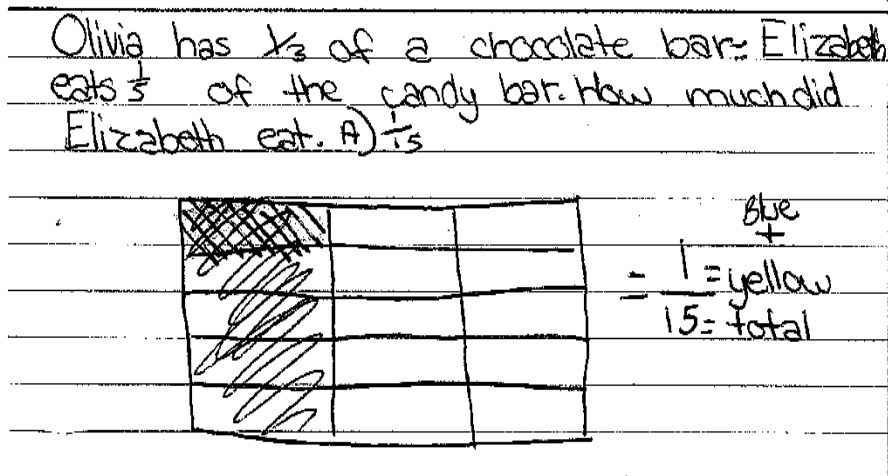 Olivia has 1/3 of a chocolate bar. Elizabeth
eats 1/5 of the candy bar. How much did
Elizabeth eat. A) 1/15
Blue
+
= 1 = yellow
15 = total